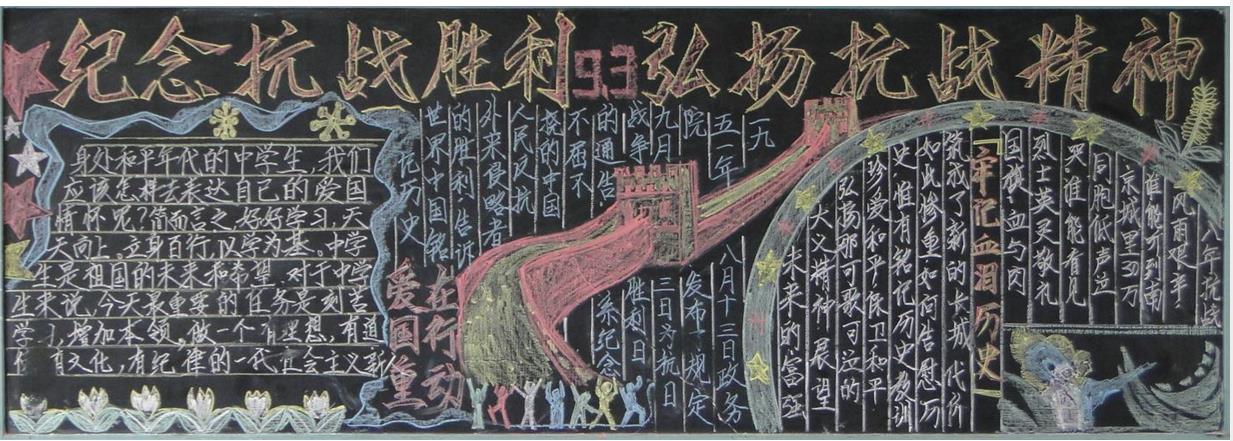 纪念抗战胜利9.3弘扬抗战精神
身处和平年代的中学生,我们
应该怎样去表达自己的爱国
情怀呢?简而言之,好好学习,天
天向上。立身百行,以学为基。中学
生是祖国的未来和希望,对于中学
生来说,今天最重要的任务是刻苦
学习,增加本领,做一个有理想,有道
有文化,有纪律的一代社会主义新
爱国重
在行动
一九
五一年八月十三日政务
院发布了规定
九月三日为抗日
战争胜利日
的通告系纪念
不屈不
挠的中国
人民反抗
外来侵略者
的胜利告诉
世界中国铭
记历史
『牢记血泪历史』
八年抗战
风雨艰辛
谁能才到南
京城里30万
同胞低声泣
哭谁能看见
烈士英灵敬礼
国旗血与肉
筑成了新的长城代价
如此惨重如何告慰历
史惟有铭记历史教训
珍爱和平保卫和平
弘扬那可歌可泣的
大义精神展望
未来的富强